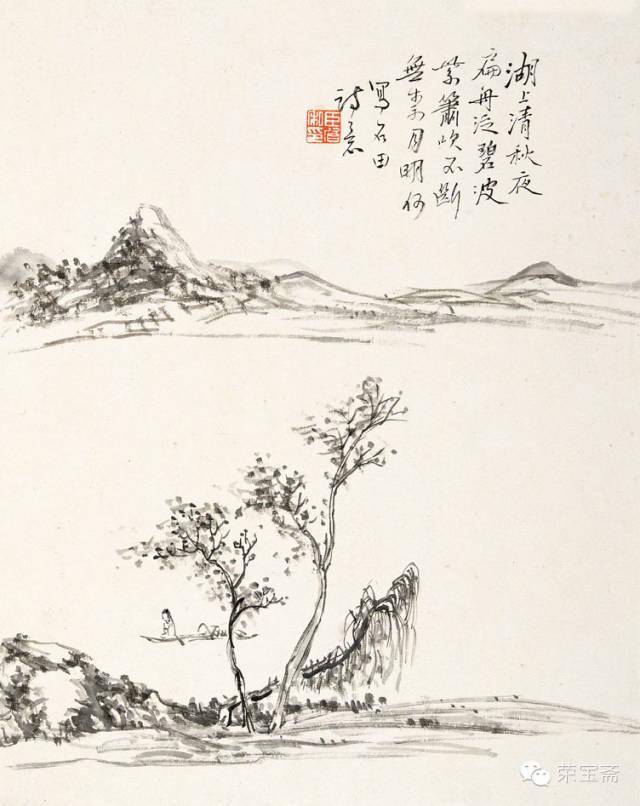 湖上清秋夜
扁舟泛碧波
紫簫吹不斷
無奈月明何
寫石田
詩意
荣宝斋